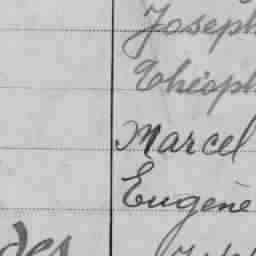 Joseph
Théoph
Marcel
Eugène
des